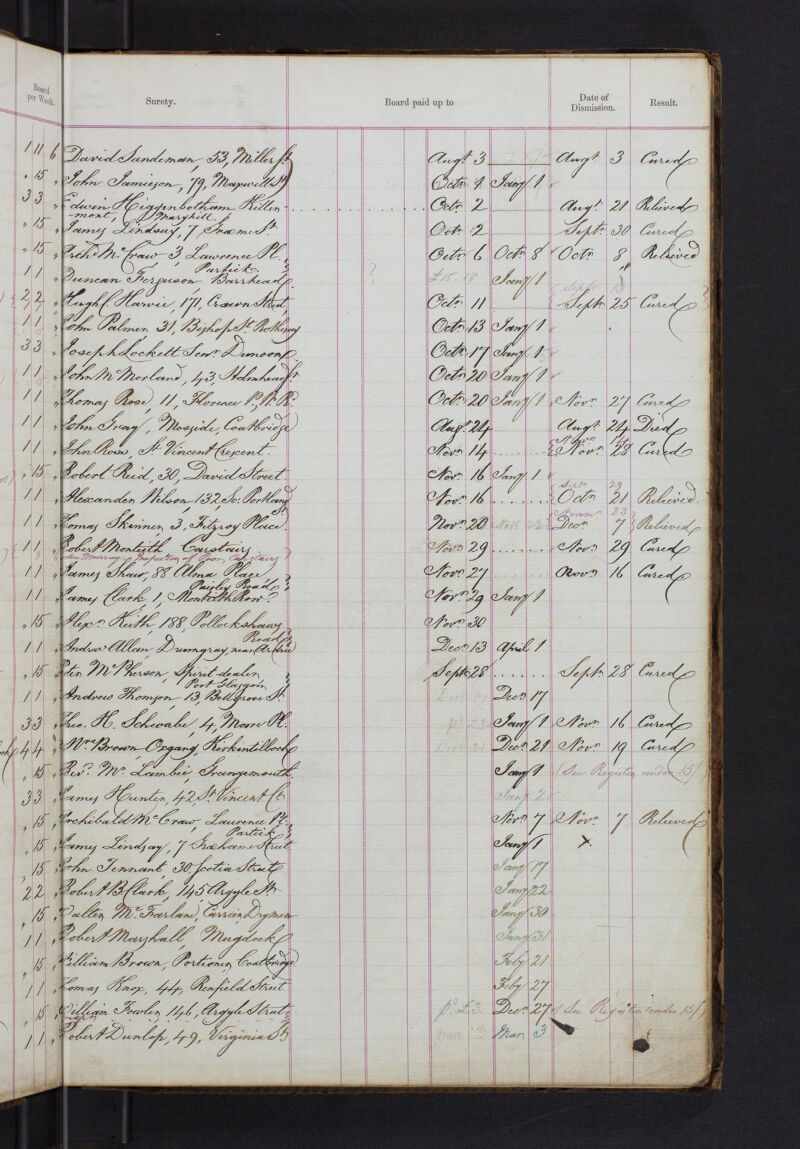 Board per Week. Surety. Board paid up to Date of Dismission. Result.
1 11 6 David Sandeman, 53, Miller St Augt 3 Augt 3 Cured
" 15 " John Jamieson, 79, Maxwell St Octr 4 Jany 1
3 3 " Edwin Higginbotham Killer- Octr 2 Augt 21 Relieved
-mont, Maryhill.
" 15 " James Lindsay, 7 Græme St Octr 2 Septr 30 Cured
" 15 " Archd McCraw 3, Lawrence Pl., Octr 6 Octr 8 Octr 8 Relieved
Partick.
1 1 " Duncan Ferguson Barrhead ? £15.18 Jany 1 "
Septr 13
2 2 " Hugh Harvie, 171, Crown Street Octr 11 Septr 25 Cured
1 1 " John Palmer 31, Bishop St Rothesay Octr 13 Jany 1
3 3 " Joseph Lockett Senr Dunoon Octr 17 Jany 1
1 1 " John McMorland, 43, Holmhead St Octr 20 Jany 1
1 1 " Thomas Rose, 11, Florence Pl, Octr 20 Jany 1 Novr 27 Cured
1 1 " John Gray, Mosside, Coatbridge Augt 24 Augt 24 Died
Novr 14
1 1 " John Ross, St Vincent Crescent. Novr 14 Novr 28 Cured
" 15 " Robert Reid, 30, David Street Novr 16 Jany 1
Septr 29
1 1 " Alexander Wilson, 132, So. Portland St Novr 16 Octr 21 Relieved
Novemr 23
1 1 " Thomas Skinner 3, Fitzroy Place. Novr 20 Novr 23 Decr 7 Relieved
1 1 " Robert Monteith Carstairs Novr 29 Novr 29 Cured
Murray, Inspector of Poor, Carstairs
1 1 " James Shaw, 38 Alma Place Novr 27 Novr 16 Cured
Paisley Road
1 1 " James Clark 1, Monteith Row. Novr 29 Jany 1
" 15 " Alexr Keith, 188, Pollockshaws Novr 30
Road
1 1 " Andrew Allan, Drumgray, near Airdrie Decr 13 April 1
" 15 " Peter McPherson, Spirit-dealer, Septr 28 Septr 28 Cured
Port Glasgow
1 1 " Andrew Thomson, 13, Bellgrove St. Decr 17 Decr 17
3 3 " Theo. H. Schwabe, 4, More Pl. pd £3 Jany 1 Novr 16 Cured
4 4 " Mrs Brown, Organg, Kirkintilloch Decr 21 Decr 21 Novr 19 Cured
" 15 " Revd Mr Lambie, Grangemouth. Jany 1 (See Register under 15/)
3 3 " James Hunter, 42 St Vincent Ct Jany 2
" 15 " Archibald McCraw, Lawrence Pl. Novr 7 Novr 7 Relieved
Partick
" 15 " James Lindsay, 7 Grahame Street Jany 1 x
" 15 " John Tennant, 30, Scotia Street Jany 17
2 2 " Robert B. Clark, 145 Argyle St. Jany 22
" 15 " McFarland, Drymen Jany 30
1 1 " Robert Marshall, Mugdock Jany 31
" 15 " William Brown, Portioner, Coatbridge Feby 21
1 1 " Thomas Knox, 44, Renfield Street Feby 27
" 15 " William Fowler 146, Argyle Street pd £3 Decr 27 (See Register under 15/)
1 1 " Robert Dunlop, 49, Virginia St Mar 3 Mar 3